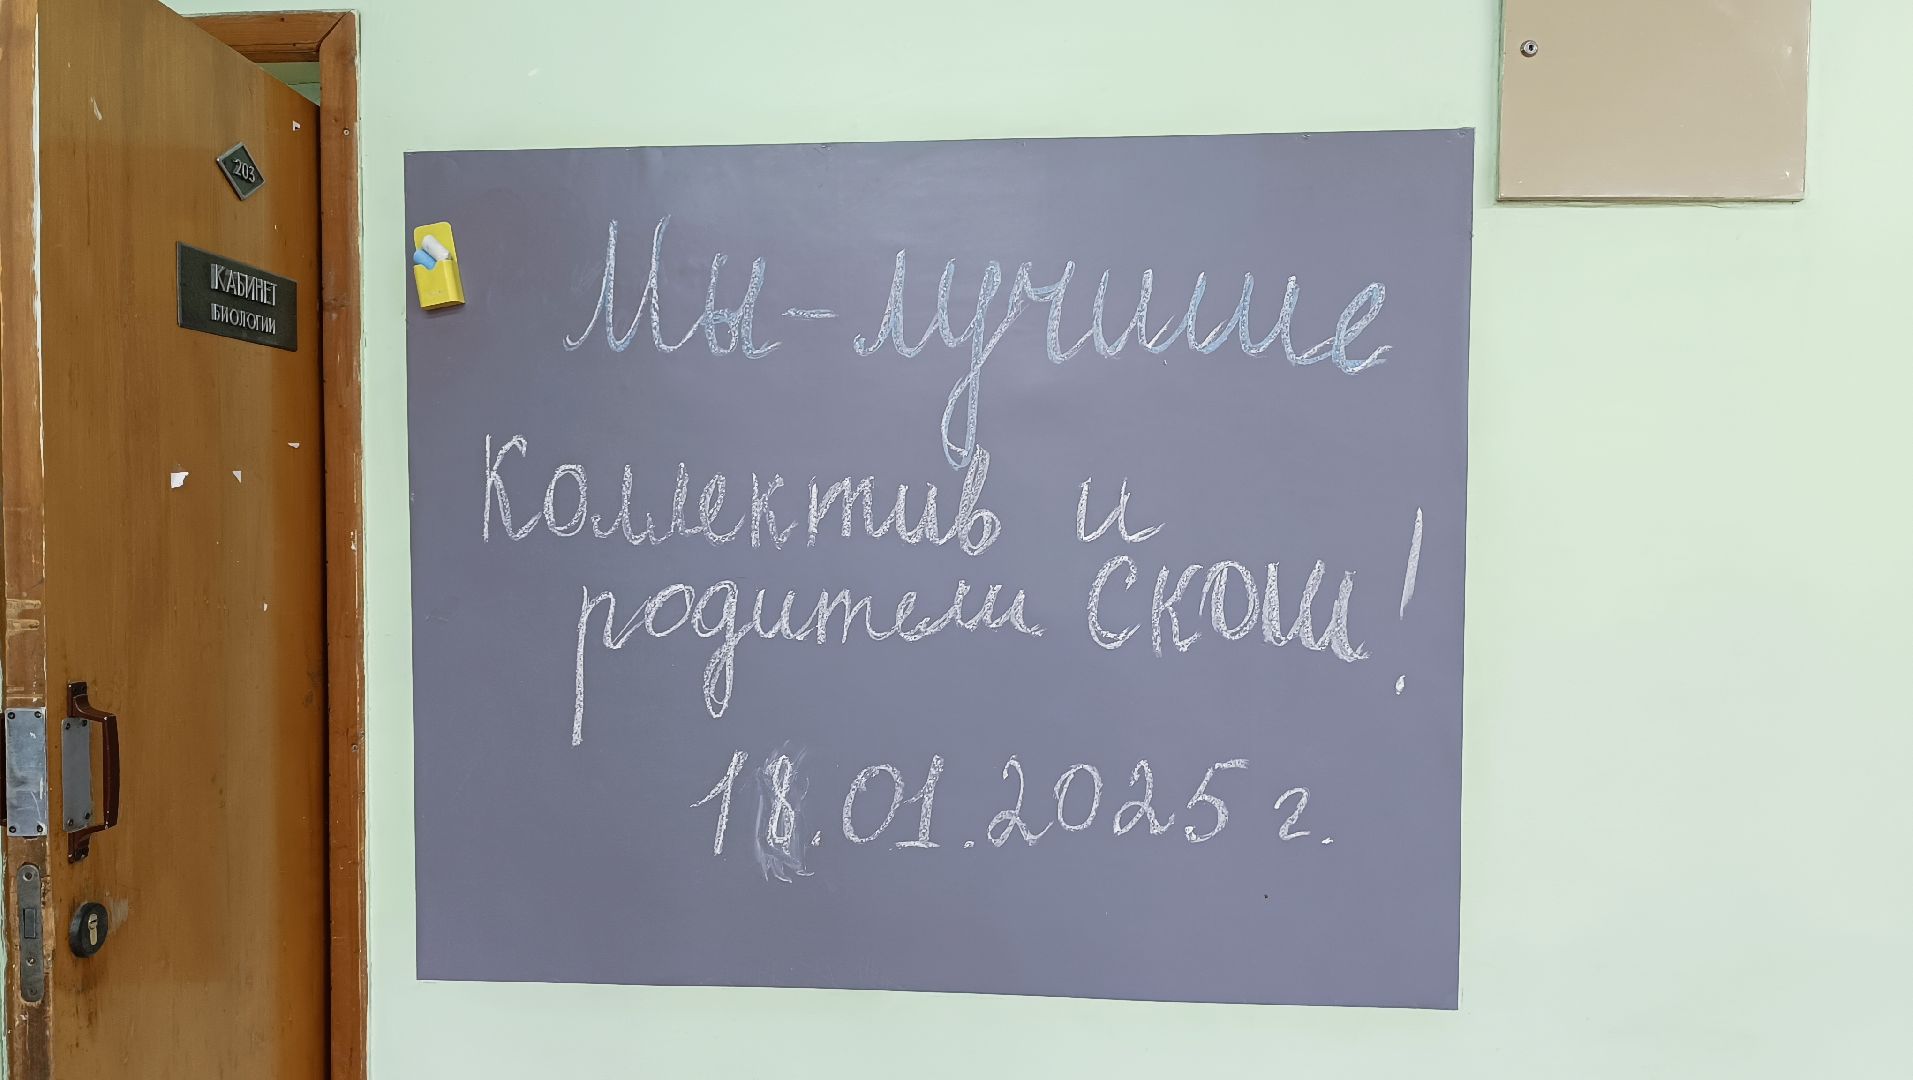 203
КАБИНЕТ
БИОЛОГИИ
Мы - лучшие
Коллектив и
родители СКОШ!
18.01.2025 г.